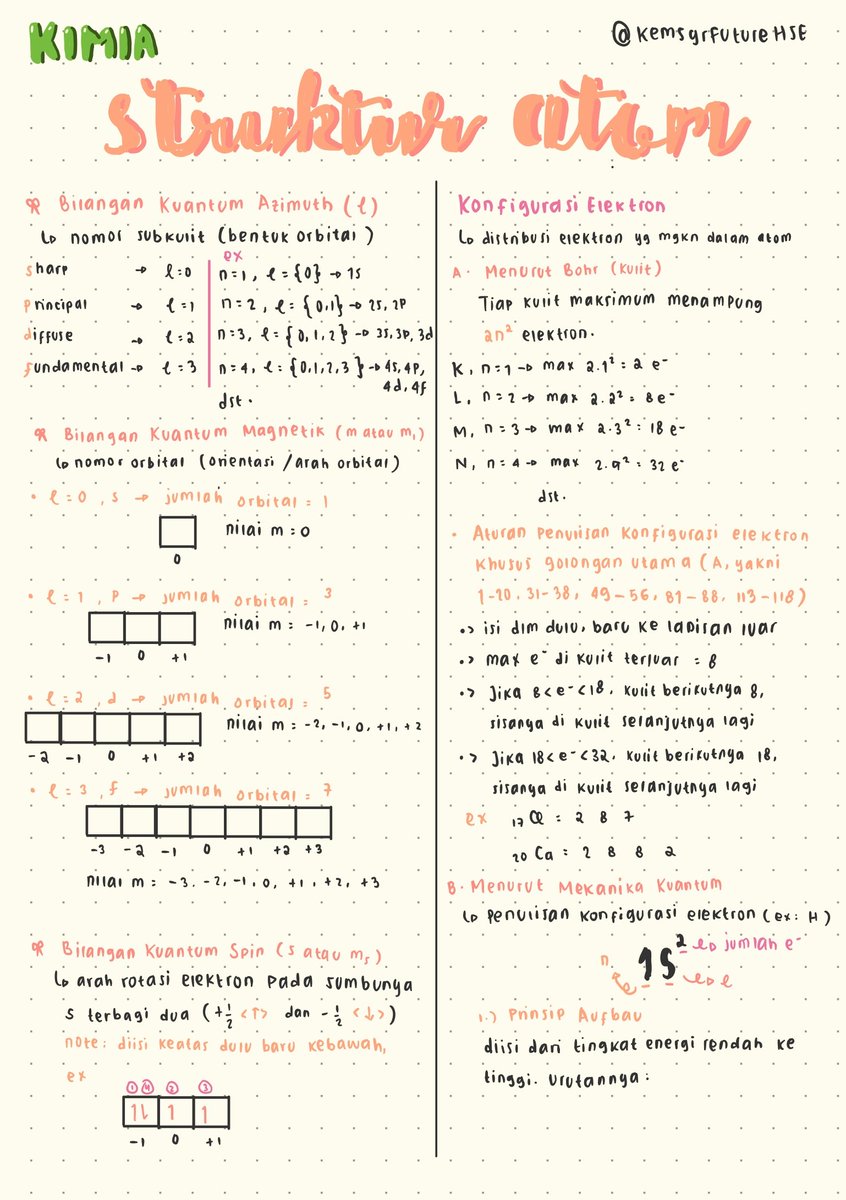 KIMIA
@kemsgrfutureHSE
struktur atom
Bilangan Kuantum Azimuth (l)
↳ nomor subkulit (bentuk orbital)
sharp → l=0
principal → l=1
diffuse → l=2
fundamental → l=3
ex
n=1, l={0} → 1s
n=2, l={0,1} → 2s, 2p
n=3, l={0,1,2} → 3s, 3p, 3d
n=4, l={0,1,2,3} → 4s, 4p,
4d, 4f
dst.
Bilangan Kuantum Magnetik (m atau m₁)
↳ nomor orbital (orientasi/arah orbital)
• l=0, s → jumlah orbital = 1
nilai m = 0
0
• l=1, p → jumlah orbital = 3
nilai m = -1, 0, +1
-1 0 +1
• l=2, d → jumlah orbital = 5
nilai m = -2, -1, 0, +1, +2
-2 -1 0 +1 +2
• l=3, f → jumlah orbital = 7
-3 -2 -1 0 +1 +2 +3
nilai m = -3, -2, -1, 0, +1, +2, +3
Bilangan Kuantum Spin (s atau ms)
↳ arah rotasi elektron pada sumbunya
s terbagi dua (+1/2 <↑> dan -1/2 <↓>)
note: diisi keatas dulu baru kebawah,
ex
1 4 2 3
1l 1 1
-1 0 +1
Konfigurasi Elektron
↳ distribusi elektron yg mgkn dalam atom
A. Menurut Bohr (kulit)
Tiap kulit maksimum menampung
2n² elektron.
K, n=1 → max 2.1² = 2 e⁻
L, n=2 → max 2.2² = 8 e⁻
M, n=3 → max 2.3² = 18 e⁻
N, n=4 → max 2.4² = 32 e⁻
dst.
• Aturan penulisan konfigurasi elektron
khusus golongan utama (A, yakni
1-20, 31-38, 49-56, 81-88, 113-118)
•> isi dlm dulu, baru ke lapisan luar
•> max e⁻ di kulit terluar = 8
•> Jika 8<e⁻<18, kulit berikutnya 8,
sisanya di kulit selanjutnya lagi
•> Jika 18<e⁻<32, kulit berikutnya 18,
sisanya di kulit selanjutnya lagi
ex ₁₇Cl = 2 8 7
₂₀Ca = 2 8 8 2
B. Menurut Mekanika Kuantum
↳ penulisan konfigurasi elektron (ex: H)
n 1s² → jumlah e⁻
→ l
1.) Prinsip Aufbau
diisi dari tingkat energi rendah ke
tinggi. urutannya: